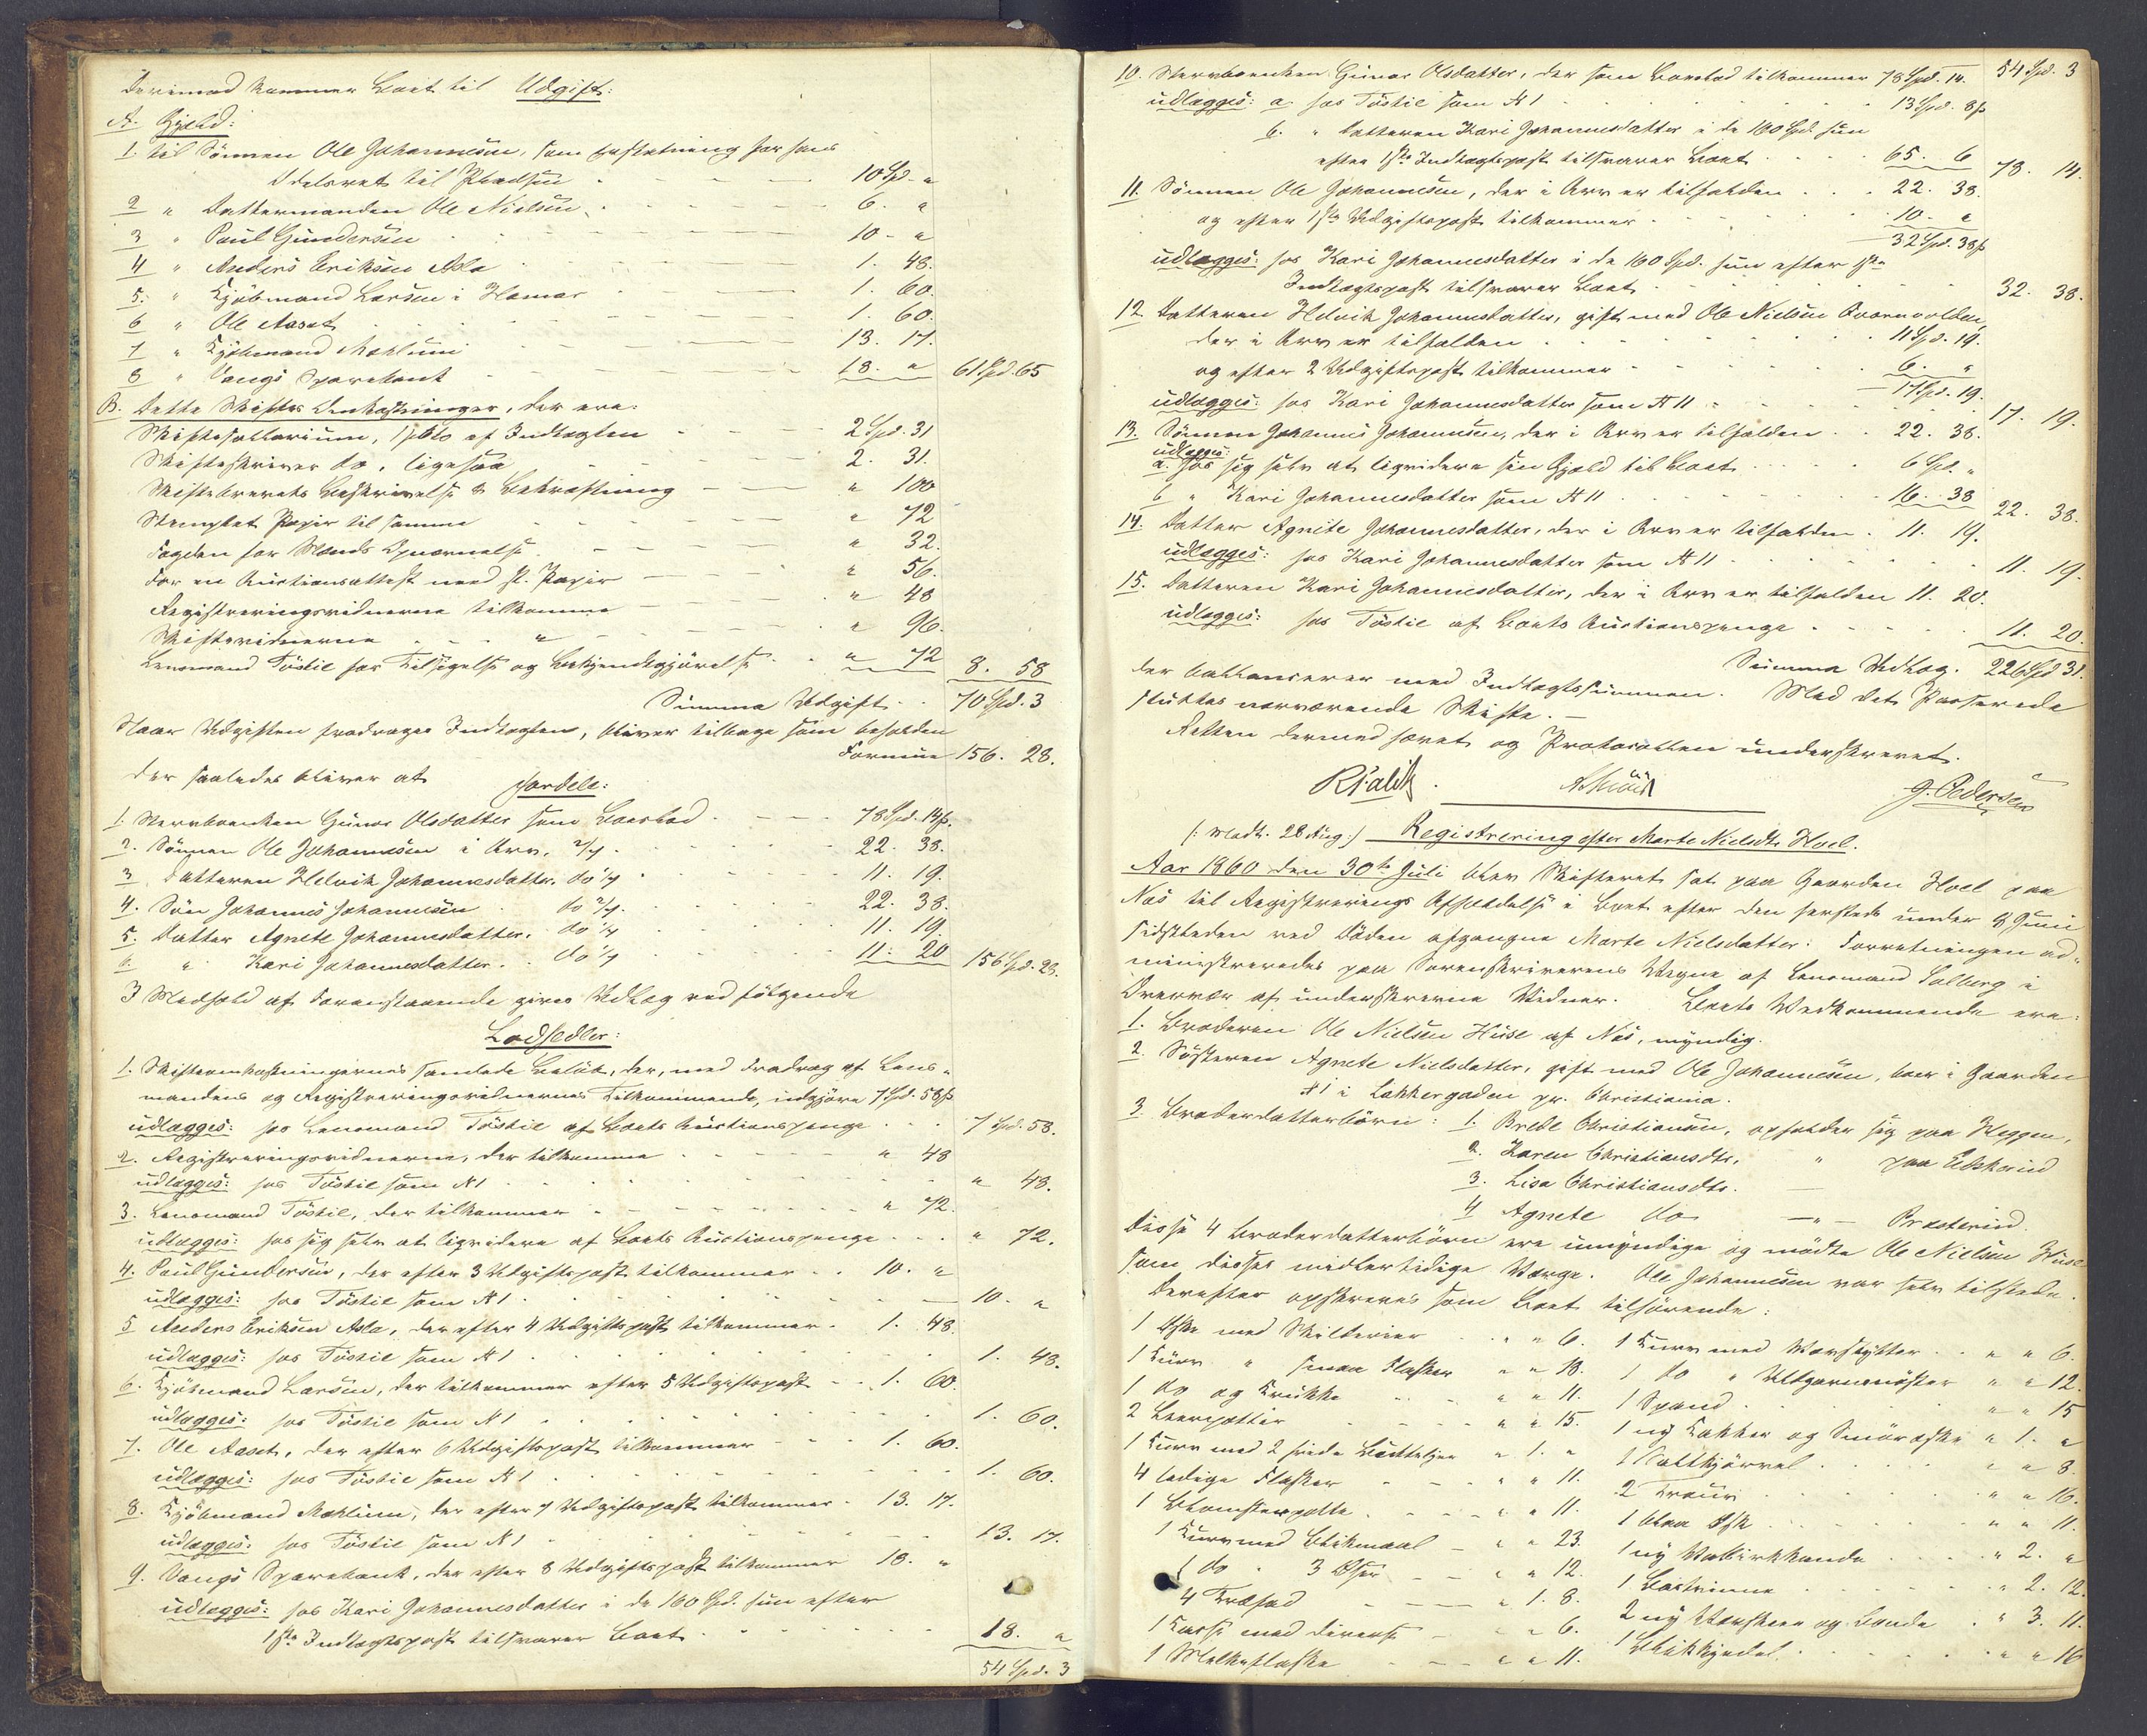 Derimod kommer Boet til Udgift:
A. Gjæld:
1. til Sønnen Ole Johannesen, som Erstatning for hans
Odelsret til Pladsen - - - - 10 Spd. "
2 " Dattermanden Ole Nielsen - - - - 6. "
3 " Poul Gundersen - - - - 10 - "
4 " Anders Eriksen Asla - - - - 1. 48.
5. " Kjøbmand Larsen i Hamar - - - 1. 60.
6 " Ole Aaset - - - - 1. 60.
7 " Kjøbmand Mæhlum - - - - 13. 17.
8 " Vangs Sparebank - - - - 18. " 61 Spd. 65
B. Dette Skiftes Omkostninger, der ere:
Skiftesallarium, 1 pCto af Indtægten - - - 2 Spd. 31
Skifteskriver do, ligesaa - - - 2. 31.
Skiftebrevets Beskrivelse & Bekræftning - - - " 100
Stemplet Papir til samme - - - " 72
Fogden for Mænds Opnævnelse - - - " 32.
For en Auctionsattest med st. Papir - - - " 56.
Registreringsvidnerne tilkomme - - - " 48
Skiftevidnerne - - " - - - " 96.
Lensmand Tøstie for Tilsigelse og Bekjendtgjørelse - " 72 8. 58
Summa Udgift - - 70 Spd. 3
Naar Udgiften fradrages Indtægten, bliver tilbage som beholden
Formue 156. 28.
der saaledes bliver at fordele:
1. Stervboenken Gunor Olsdatter som Boeslod - - - 78 Spd. 14 s.
2. Sønnen Ole Johannesen i Arv, 2/7 - - - 22. 38.
3 Datteren Helvik Johannesdatter. do 1/7 - - - 11. 19.
4. Søn Johannes Johannesen do 2/7 - - - 22. 38.
5. Datter Agnete Johannesdatter. do 1/7 - - - 11. 19.
6. " Kari Johannesdatter. do 1/7 - - - 11. 20 156 Spd. 28.
I Medhold af Foranstaaende gives Udlæg ved følgende
Lodsedler:
1. Skifteomkostningernes samlede Beløb, der, med Fradrag af Lens-
mandens og Registreringsvidnernes Tilkommende, udgjøre 7 Spd. 58 s
udlægges: hos Lensmand Tøstie af Boets Auctionspenge - - - 7 Spd. 58.
2. Registreringsvidnerne, der tilkomme - - - " 48
udlægges: hos Tøstie som N 1 - - - " 48.
3. Lensmand Tøstie, der tilkommer - - - " 72.
udlægges: hos sig selv at liqvidere af Boets Auctionspenge - - - " 72.
4. Poul Gundersen, der efter 3 Udgiftspost tilkommer - - 10. "
udlægges: hos Tøstie som N 1 - - - 10. "
5 Anders Eriksen Asla, der efter 4 Udgiftspost tilkommer - 1. 48.
udlægges: hos Tøstie som N 1 - - - 1. 48.
6. Kjøbmand Larsen, der tilkommer efter 5 Udgiftspost - - 1. 60.
udlægges: hos Tøstie som N 1 - - - 1. 60.
7. Ole Aaset, der efter 6 Udgiftspost tilkommer - - - 1. 60.
udlægges: hos Tøstie som N 1 - - - 1. 60.
8. Kjøbmand Mæhlum, der efter 7 Udgiftspost tilkommer - 13. 17.
udlægges: hos Tøstie som N 1 - - - 13. 17.
9. Vangs Sparebank, der efter 8 Udgiftspost tilkommer 18. "
udlægges: hos Kari Johannesdatter i de 160 Spd. hun efter
1ste Indtægtspost tilsvarer Boet - - - 18. "
54 Spd. 3
10. Stervboenken Gunor Olsdatter, der som Boeslod tilkommer 78 Spd. 14. 54 Spd. 3
udlægges: a. hos Tøstie som N 1 - - - 13 Spd. 8 s
b. " Datteren Kari Johannesdatter i de 160 Spd. hun
efter 1ste Indtægtspost tilsvarer Boet - - - 65. 6 78. 14.
11. Sønnen Ole Johannesen, der i Arv er tilfalden - - - 22. 38.
og efter 1ste Udgiftspost tilkommer - - - 10. "
32 Spd. 38 s
udlægges: hos Kari Johannesdatter i de 160 Spd. hun efter 1ste
Indtægtspost tilsvarer Boet - - - 32. 38.
12. Datteren Helvik Johannesdatter, gift med Ole Nielsen Qværnvolden,
der i Arv er tilfalden - - - 11 Spd. 19.
og efter 2 Udgiftspost tilkommer - - - 6. "
17 Spd. 19.
udlægges: hos Kari Johannesdatter som N 11 - - - 17. 19.
13. Sønnen Johannes Johannesen, der i Arv er tilfalden - - 22. 38.
udlægges:
a. hos sig selv at liqvidere sin Gjæld til Boet - - - 6 Spd. "
b " Kari Johannesdatter som N 11 - - - 16. 38 22. 38.
14. Datter Agnete Johannesdatter, der i Arv er tilfalden - 11. 19.
udlægges: hos Kari Johannesdatter som N 11 - - - 11. 19.
15. Datteren Kari Johannesdatter, der i Arv er tilfalden 11. 20.
udlægges: hos Tøstie af Boets Auctionspenge - - - 11. 20.
Summa Udlæg. 226 Spd 31.
der ballancerer med Indtægtssummen. Med det Passerede
sluttes nærværende Skifte. -
Retten dermed hævet og Protocollen underskrevet.
G. Pedersen
(: Modt. 28 Aug :) Registrering efter Marte Nielsdtr Hoel.
Aar 1860 den 30te Juli blev Skifteret sat paa Gaarden Hoel paa
Næs til Registrerings Afholdelse i Boet efter den hersteds under 8 Juni
sidstleden ved Døden afgangne Marte Nielsdatter: Forretningen ad-
ministreredes paa Sorenskriverens Vegne af Lensmand Solberg i
Overvær af underskrevne Vidner. Boets Vedkommende ere:
1. Broderen Ole Nielsen Huse af Næs, myndig.
2. Søsteren Agnete Nielsdatter, gift med Ole Johannesen, boer i Gaarden
N 1 i Lakkergaden pr. Christiania.
3 Broderdatterbørn: 1. Brede Christiansen, opholder sig paa Heggen,
2. Karen Christiansdtr. " paa Eeksherad
3. Lisa Christiansdtr. —
4 Agnete do — " — Præsterud.
Disse 4 Broderdatterbørn ere umyndige og mødte Ole Nielsen Huse
som disses midlertidige Værge. Ole Johannesen var selv tilstede.
Derefter opskreves som Boet tilhørende:
1 Æske med Skilderier - - " " 6. 1 Kurv med - - " " 6.
1 Kurv " smaa Flasker " " 18. 1 do " Uldgarnsnøster " " 12.
1 do og Krukke - - " " 11. 1 Spand - - - " " 15
2 Leerpotter - - - " " 15. 1 ny Lakker og Smøræske " 1. "
1 Kurv med 2 hvide Bouteljer " 1. " 1 Saltkjørrel - - - " " 8.
4 ledige Flasker - - " " 11. 2 Traug - - - " " 16.
1 Blomsterpotte - - - " " 11. 1 blaa Æske - - - " " 11.
1 Kurv med Blikmaal - " " 23. 1 ny - - - " 2. "
1 do " 3 Øser - - " " 12. 1 - - - " 2. 12.
4 Træfad - - - " 1. 8. 2 ny og Bonde - " 3. 11.
1 Kasse med diverse - " " 6. 1 Blikkjedel - - - " " 16
1 Melkeflaske - - - " " 11.